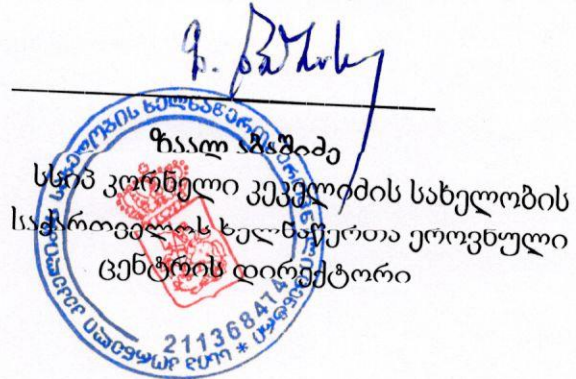 ზაალ აბაშიძე
სსიპ კორნელი კეკელიძის სახელობის
საქართველოს ხელნაწერთა ეროვნული
ცენტრის დირექტორი
211368474